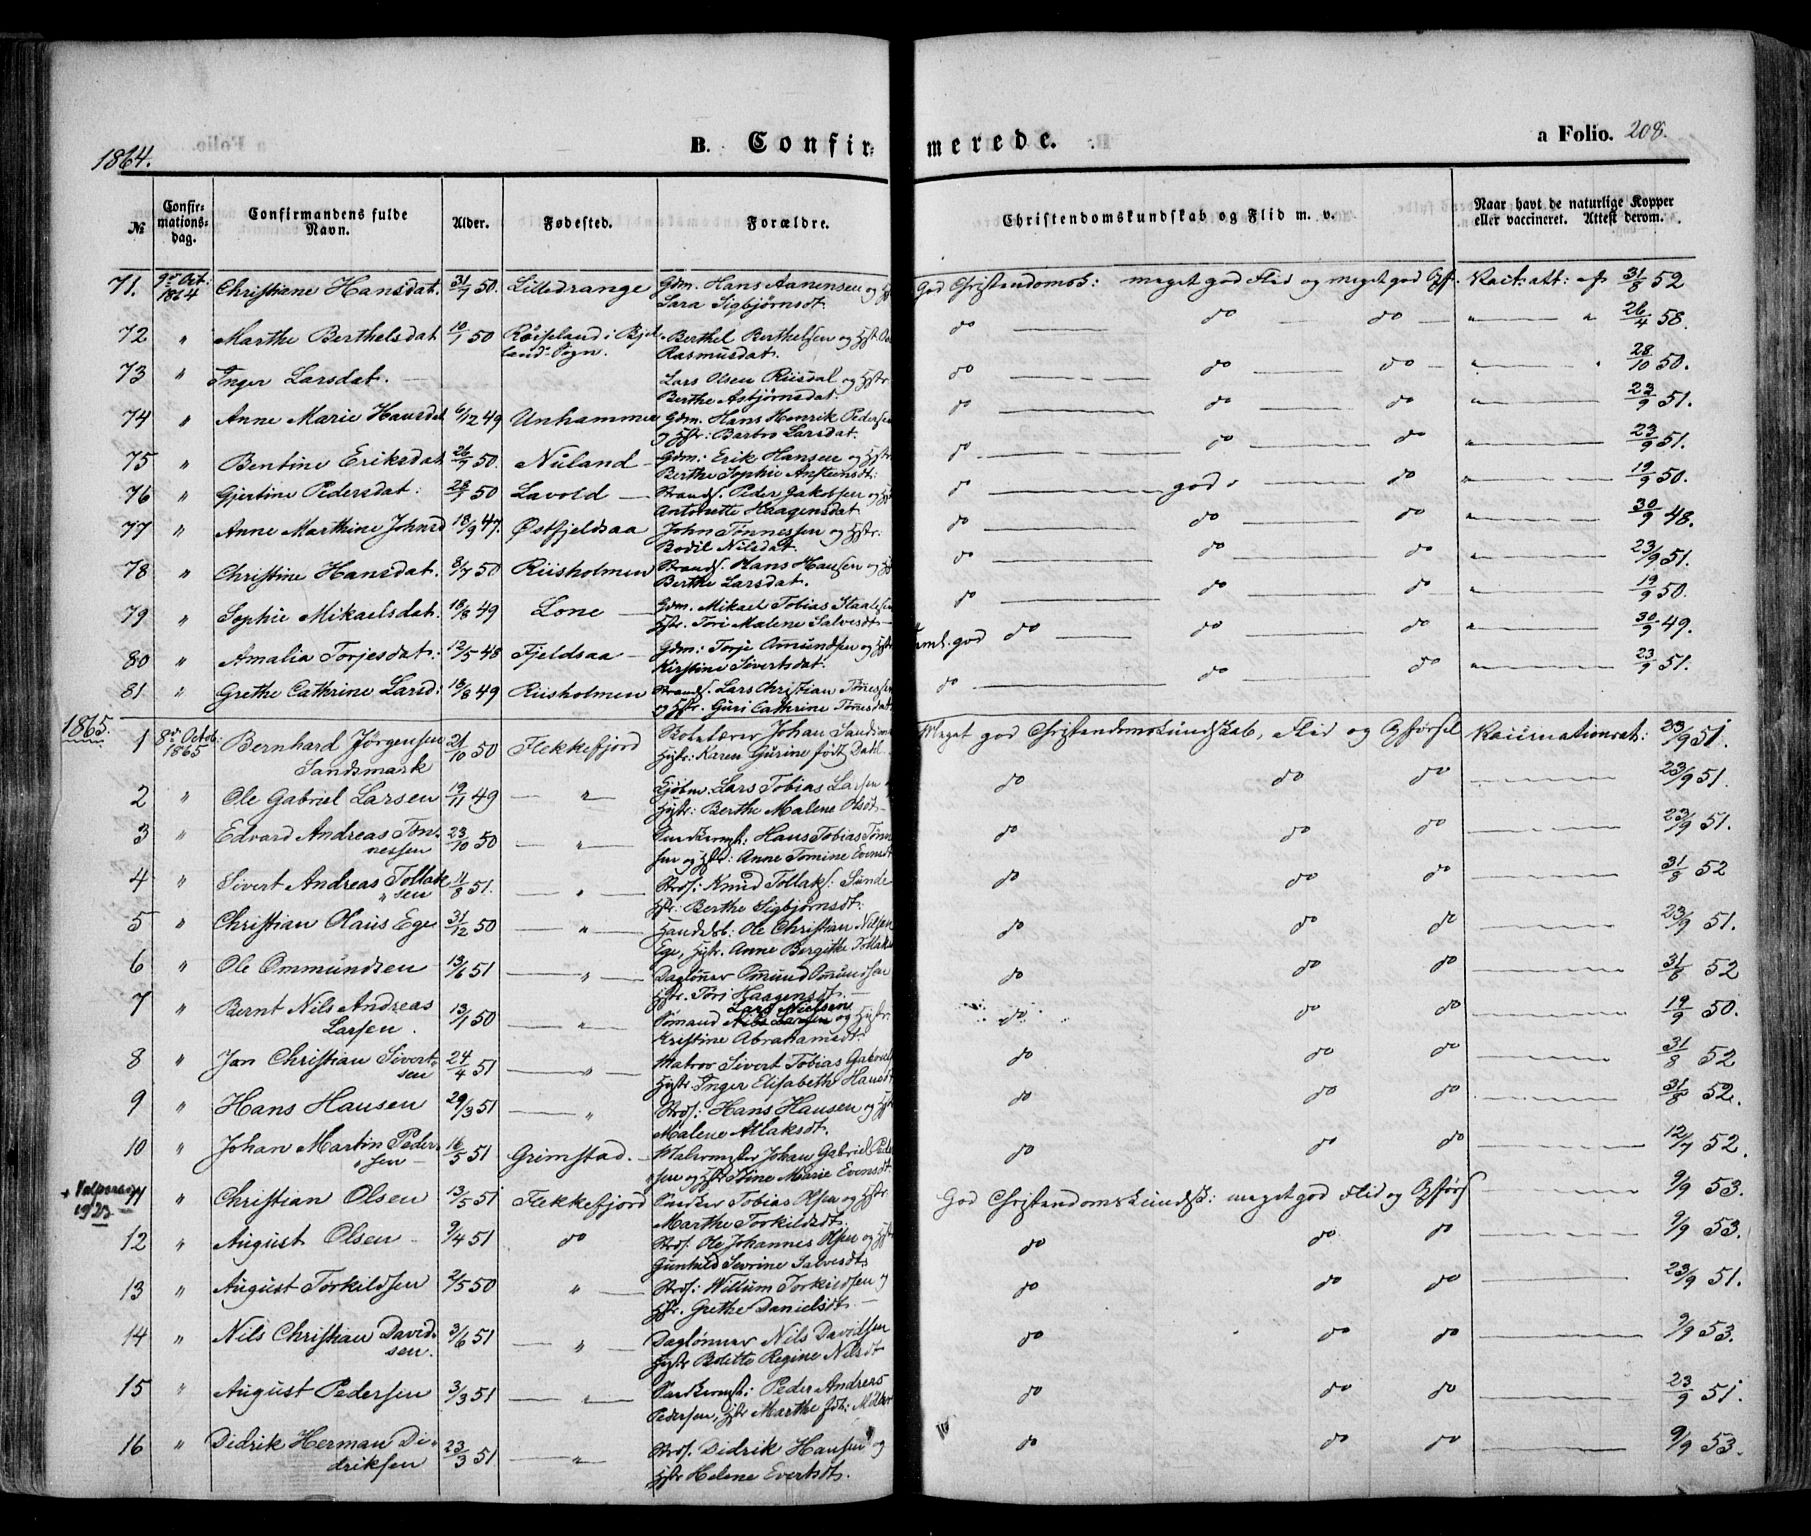 1864.
B. Confirmerede.
a Folio. 208.
№
Confirmationsdag.
Confirmandens fulde Navn.
Alder.
Fødested.
Forældre.
Christendomskundskab og Flid m. v.
Naar havt de naturlige Kopper eller vaccineret. Attest derom.
71. 9de Oct: 1864 Christiane Hansdat. 31/7 50. Lilledrange Gdm. Hans Aanensen og God Christendomsk: meget god Flid og meget god Vacc: att: af 31/8 52
Sara Sigbjørnsdt.
72 " Marthe Berthelsdat 10/1 50 Røiseland i Bjel Berthel Berthelsen og Hstr do do do " " 26/4 58.
lands Sogn. Rasmusdat.
73 " Inger Larsdat. Lars Olsen Riisdal og Hstr do do do " 28/10 50.
Berthe Asbjørnsdat.
74 " Anne Marie Hansdat 6/12 49 Unhammer Gdm. Hans Henrik Pedersen do do do " 23/9 51.
og Hstr: Barbro Larsdat.
75 " Bentine Eriksdat 26/7 50. Nuland Gdm: Erik Hansen og Hstr do do do " 23/9 51.
Berthe Sophie
76 " Gjertine Pedersdat: 28/7 50 Lavold Strands. Peder Jakobsen og do god do " 19/9 50.
Antonette Haagensdat
77 " Anne Marthine Johnsd 18/9 47. Østfjeldsaa John Tønnessen og Hstr: do do do " 30/9 48.
Bodil Nilsdat.
78 " Christine Hansdat. 8/7 50 Riisholmen Strands. Hans Hansen og do do do " 23/9 51.
Berthe Larsdat.
79 " Sophie Mikaelsdat. 18/8 49 Lone Gdm. Mikael Tobias do do do " 19/9 50.
Hstr. Tori Malene Salvesdt
80 " Amalia Torjesdat: 12/5 48 Fjeldsaa Gdm: Torje Omundsen og Hstr god do do do " 30/9 49.
Kirstine Sivertsdat.
81 " Grethe Cathrine Larsd: 18/8 49 Riisholmen Strands. Lars Christian Tønnessen do do do " 23/9 51.
og Hstr. Guri Cathrine Tønesdat
1865.
1 8de Octob: 1865 Bernhard Jørgensen 21/10 50 Flekkefjord Johan Meget god Christendomskundskab, Flid og Opførsel Vaccinationsat: 23/9 51.
Sandsmark Hstr: Karen Gurine født Dahl
2 " Ole Gabriel Larsen 19/11 49 " Lars Tobias Larsen do do do 23/9 51.
Hstr: Berthe Malene Olsdt
3 " Edvard Andreas Tøn- 23/10 50 " Hans Tobias Tønne do do do 23/9 51.
nessen sen og Hstr: Anne Tomine Evensdt
4 " Sivert Andreas Tollak 11/8 51. " Strds: Knud Tollaks: Sunde do do do 31/8 52
sen Hstr: Berthe Sigbjørnsdt:
5 " Christian Olaus Ege 31/12 50 " Handelsb: Ole Christian Nilsen do do do 23/9 51.
Ege, Hstr. Anne Birgithe Tollaks
6 " Ole Ommundsen 13/6 51 " Daglønner Omund Omundsen do do do 31/8 52
Hstr. Tori Haagensdt
7 " Bernt Nils Andreas 13/1 50 " Lars Nielsen do do do 19/9 50.
Larsen. Sømand Nils Larsen og Hstr:
Kristine Abrahamsdt:
8 " Jan Christian Sivert- 24/4 51 " Matros Sivert Tobias Gabriels do do do 31/8 52
sen Hstr: Inger Elisabeth Hansdt
9 " Hans Hansen 29/3 51 " Strds: Hans Hansen og do do do 31/8 52.
Malene Atlaksdt.
10 " Johan Martin Peder- 16/5 51 Grimstad. Malermester Johan Gabriel Peder do do do 12/7 52.
sen sen og Hstr Stine Marie Evensdt.
+ Valparaiso 1923
11 " Christian Olsen 13/5 51 Flekkefjord Tobias Olsen og Hstr God Christendomskundsk: meget god Flid og Opførs 9/9 53.
Marthe Torkildsdt:
12 " August Olsen 9/4 51 do Strds: Ole Johannes Olsen og Hstr do do do 9/9 53.
Gunhild Sevrine Salvesdt
13 " August Torkildsen 2/5 50 " Strds: Willum Torkildsen og do do do 23/9 51.
Hstr. Grethe Danielsdt
14 " Nils Christian David- 3/6 51 " Daglønner Nils Davidsen do do do 9/9 53.
sen. Hstr Bolette Regine Nilsdt
15 " August Pedersen 3/3 51 " Peder Andreas do do do 23/9 51.
Pedersen, Hstr Marthe
16 " Didrik Herman Di- 23/3 51 " Strds. Didrik Hansen og do do do 9/9 53.
driksen Hstr Helene Evertsdt.